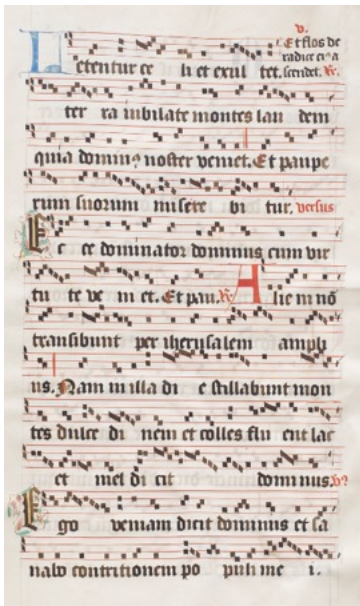 ℣.
Et flos de
radice eius
Letentur ce li et exul tet. scendet. ℟.
ter ra iubilate montes lau dem
quia dominus noster veniet. Et paupe
rum suorum misere bi tur. versus
Ec ce dominator dominus cum vir
tu te ve ni et. Et pau. ℟. Alie ni nō
transibunt per iherusalem ampli
us. Nam in illa di e stillabunt mon
tes dulce di nem et colles flu ent lac
et mel di cit dominus. ℣
Ego veniam dicit dominus et sa
nabo contritionem po puli me i.